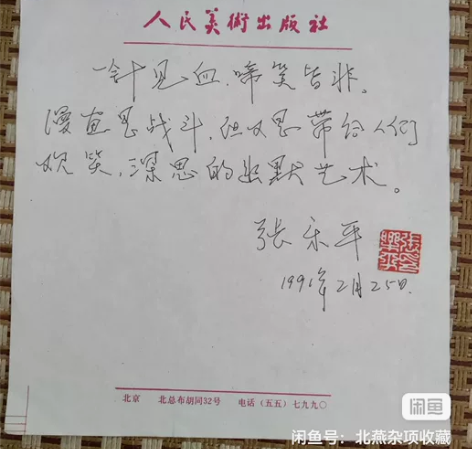 人民美術出版社
一针见血，啼笑皆非。
漫画是战斗，但又是带给人们
欢笑、深思的幽默艺术。
張乐平
張樂平印
1991年2月25日.
北京 北总布胡同32号 电话（五五）七九九〇
闲鱼
闲鱼号：北燕杂项收藏